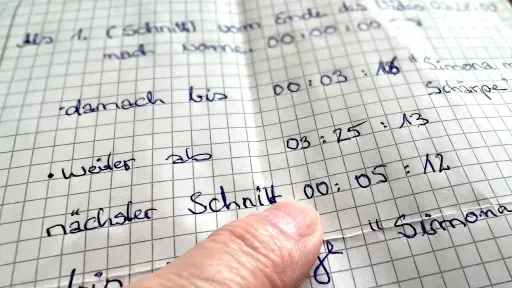 Als 1. (Schnitt) vom Ende des Video
nach Name. 00:00:00
• danach bis 00:03:16 "Simona m
Schärpe"
• weider ab 03:25:13
nächster Schnitt 00:05:12
bis "Simona